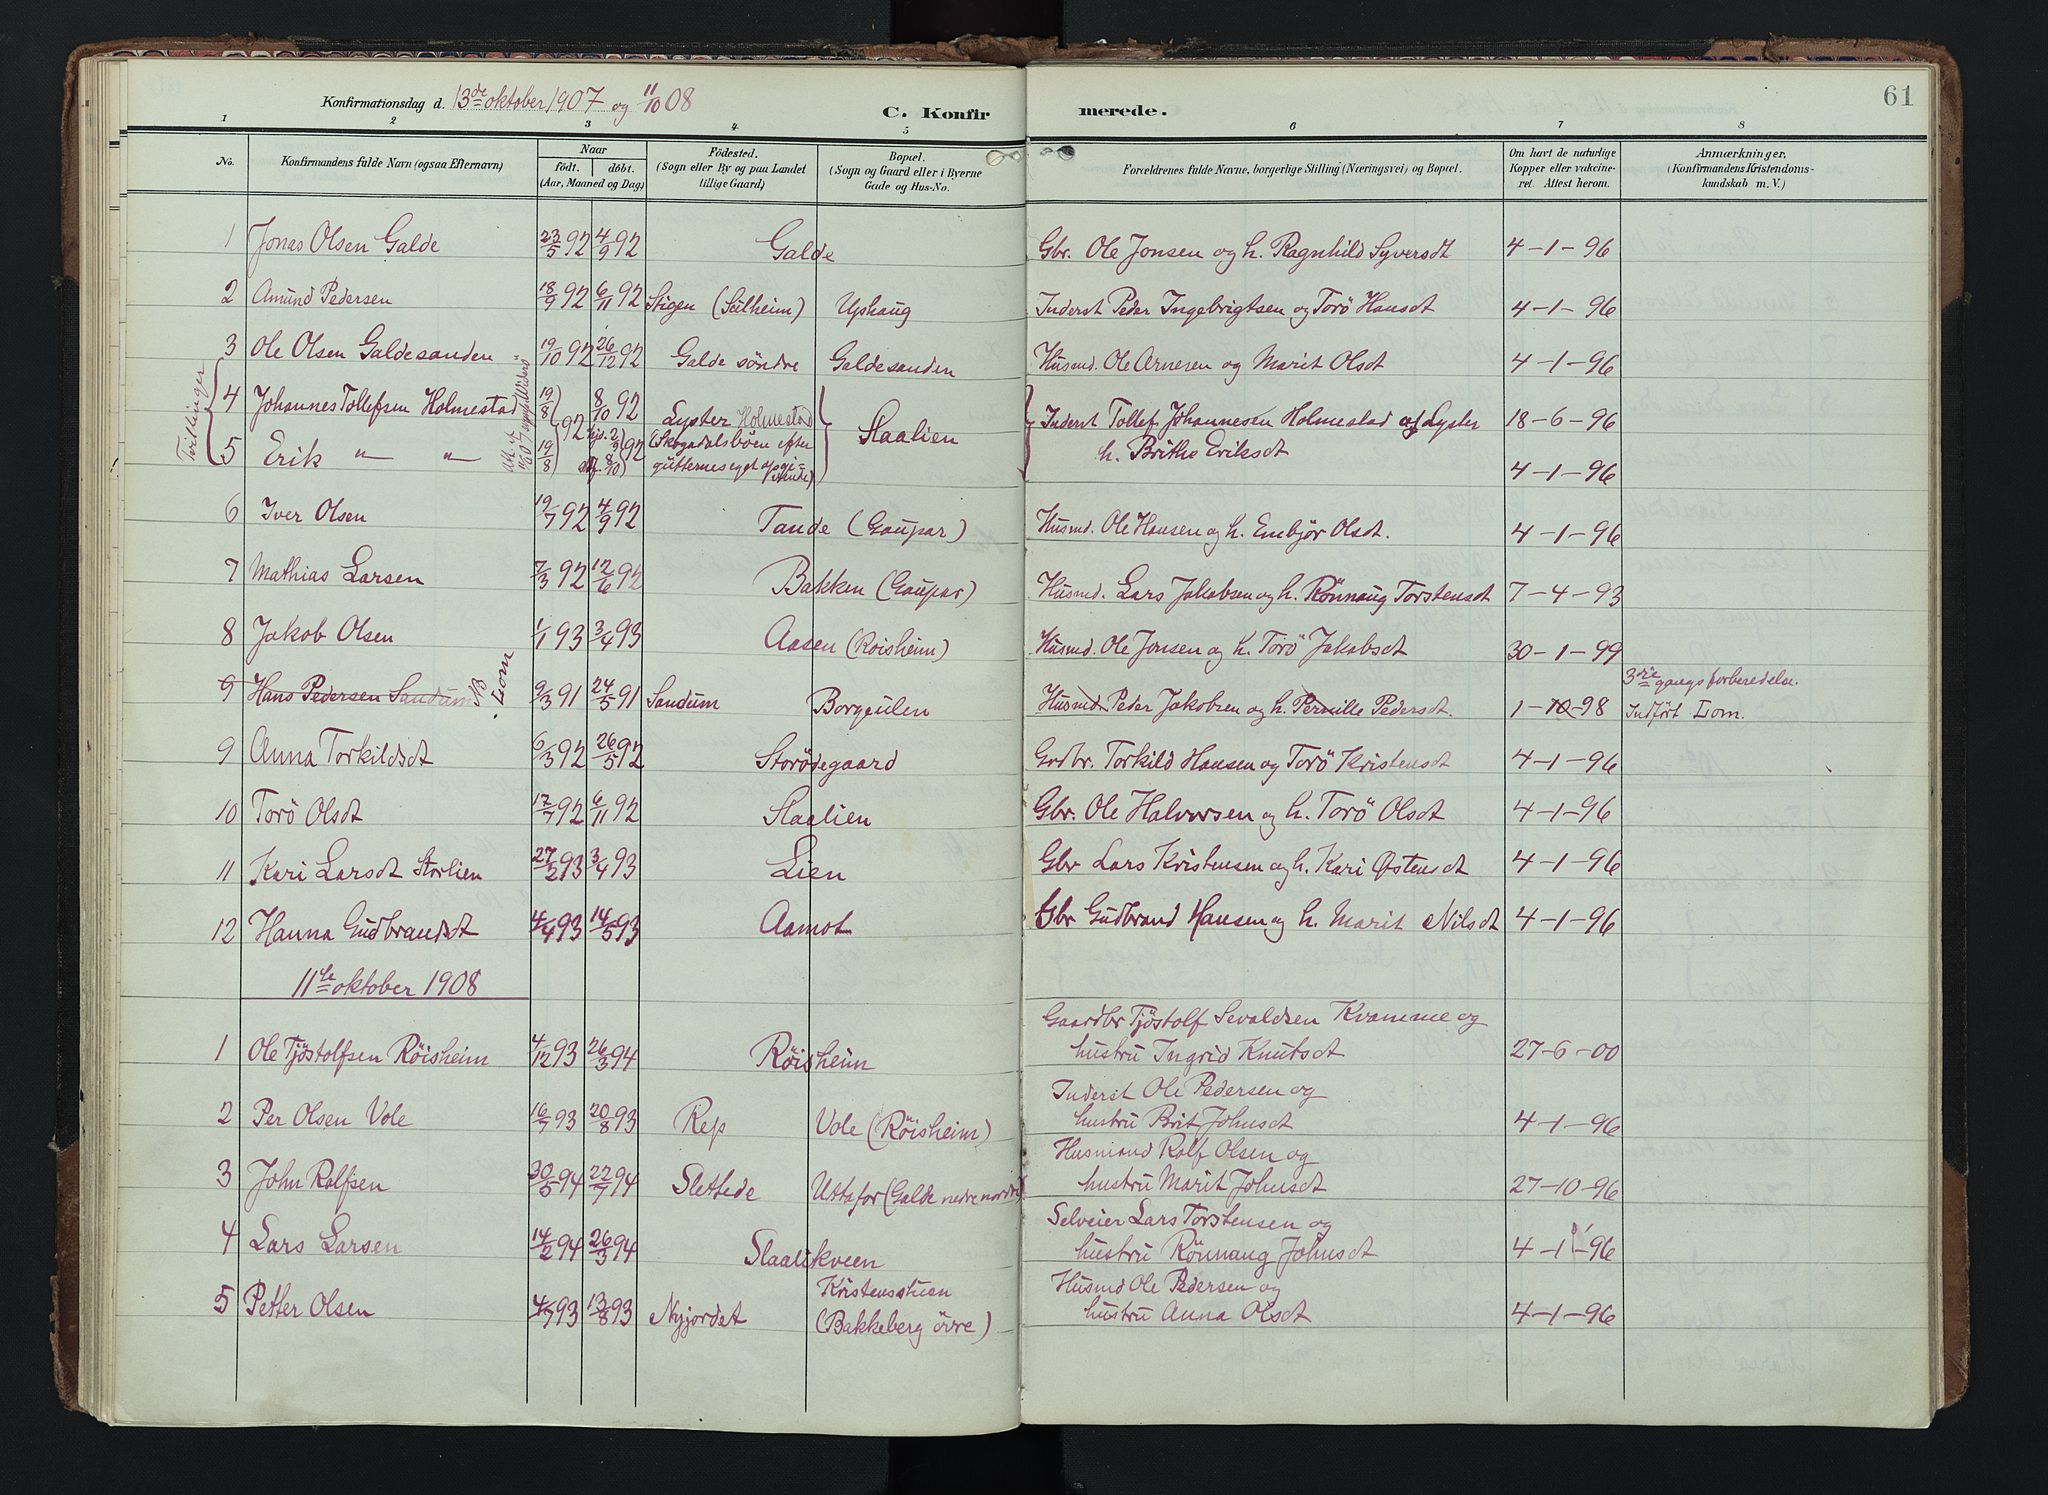 61
Konfirmationsdag d. 13de oktober 1907 og 11/10 08
C. Konfirmerede.
1 2 3 4 5 6 7 8
No.
Konfirmandens fulde Navn (ogsaa Efternavn)
Naar
födt. döbt.
(Aar, Maaned og Dag)
Födested.
(Sogn eller By og paa Landet
tillige Gaard)
Bopæl.
(Sogn og Gaard eller i Byerne
Gade og Hus-No.
Forældrenes fulde Navne, borgerlige Stilling (Næringsvei) og Bopæl.
Om havt de naturlige
Kopper eller vakcine-
ret. Attest herom.
Anmærkninger.
(Konfirmandens Kristendoms-
kundskab m. V.)
1 Jonas Olsen Galde 23/5 92 4/9 92 Galde Gbr. Ole Jonsen og h. Ragnhild Syversdt 4-1-96
2 Amund Pedersen 18/9 92 6/11 92 Stigen (Sulheim) Upshaug Inderst Peder Ingebrigtsen og Torö Hansdt 4-1-96
3 Ole Olsen Galdesanden 19/10 92 26/12 92 Galde söndre Galdesanden Husmd. Ole Arnesen og Marit Olsdt 4-1-96
Tvillinger
4 Johannes Tollefsen Holmestad 19/8 92 8/10 92 Lyster Holmestad Slaalien Inderst Tollef Johannesen Holmestad af Lyster 18-6-96
5 Erik " " 19/8 92 (Skogadalsböen efter
gutternes eget opgi-
vende) h. Brithe Eriksdt 4-1-96
6 Iver Olsen 19/7 92 4/9 92 Tande (Gaupar) Husmd. Ole Hansen og h. Embjør Olsdt. 4-1-96
7 Mathias Larsen 7/3 92 12/6 92 Bakken (Gaupar) Husmd. Lars Jakobsen og h. Rönnaug Torstensdt 7-4-93
8 Jakob Olsen 1/1 93 3/4 93 Aasen (Röisheim) Husmd. Ole Jonsen og h. Torö Jakobsdt 30-1-99
9 Hans Pedersen Sandum NB Lom. 9/3 91 24/5 91 Sandum Borgeulen Husmd Peder Jakobsen og h. Pernille Pedersdt. 1-10-98 3die gangs forberedelse.
Indfört Lom.
9 Anna Torkildsdt 6/3 92 26/5 92 Storödegaard Grdbr. Torkild Hansen og Torö Kristensdt 4-1-96
10 Torö Olsdt 17/7 92 6/11 92 Slaalien Gbr. Ole Halvorsen og h. Torö Olsdt 4-1-96
11 Kari Larsdt Storlien 27/2 93 3/4 93 Lien Gbr Lars Kristensen og h. Kari Østensdt 4-1-96
12 Hanna Gudbrandsdt 4/4 93 14/5 93 Aamot Gbr Gudbrand Hansen og h. Marit Nilsdt 4-1-96
11te oktober 1908
1 Ole Tjöstolfsen Röisheim 4/12 93 26/3 94 Röisheim Gaardbr Tjöstolf Sevaldsen Kvamme og
hustru Ingrid Knutsdt 27-6-00
2 Per Olsen Vole 16/7 93 20/8 93 Rep Vole (Röisheim) Inderst Ole Pedersen og
hustru Brit Johnsdt 4-1-96
3 John Rolfsen 30/5 94 22/7 94 Slettede Uttafor (Galde nedre nordre) Husmand Rolf Olsen og
hustru Marit Johnsdt 27-10-96
4 Lars Larsen 14/2 94 26/3 94 Slaalikveen Selveier Lars Torstensen og
hustru Rönnaug Johnsdt 4-1-96
5 Petter Olsen 4/7 93 13/8 93 Nyjordet Kristensstuen
(Bakkeberg övre) Husmd Ole Pedersen og
hustru Anna Olsdt 4-1-96